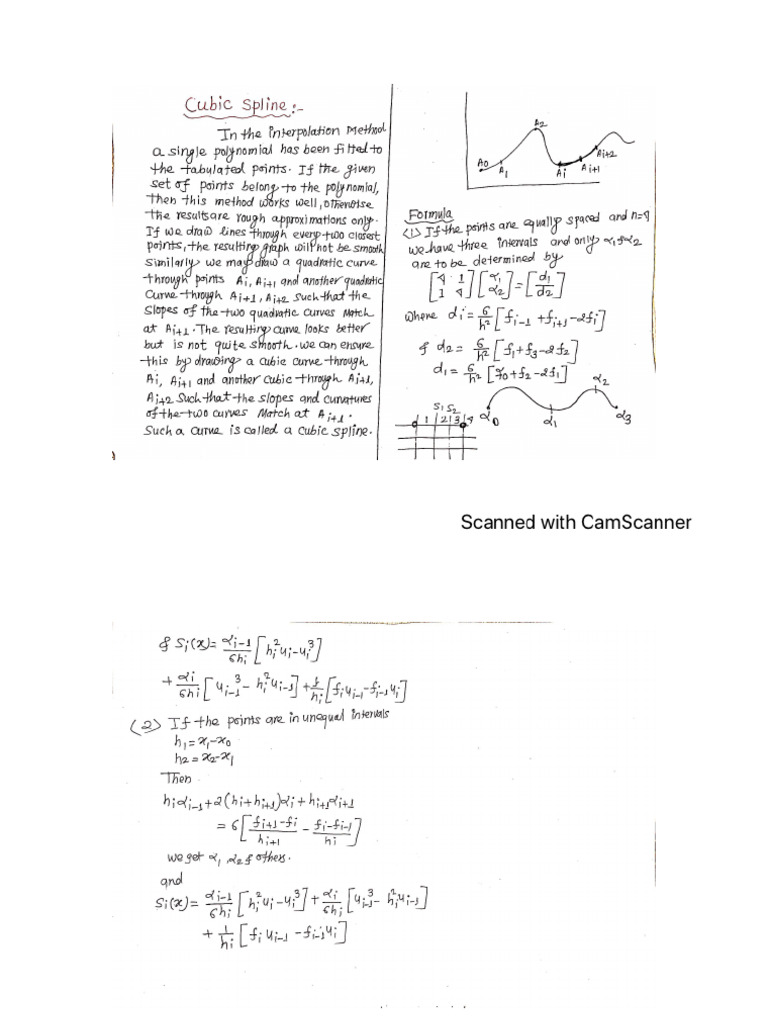 Cubic Spline:-
In the interpolation Method
a single polynomial has been fitted to
the tabulated points. If the given
set of points belong to the polynomial,
then this method works well, otherwise
the results are rough approximations only.
If we draw lines through every two closest
points, the resulting graph will not be smooth
Similarly we may draw a quadratic curve
through points Ai, Ai+1 and another quadratic
Curve through Ai+1, Ai+2 such that the
slopes of the two quadratic curves Match
at Ai+1. The resulting curve looks better
but is not quite smooth. we can ensure
this by drawing a cubic curve through
Ai, Ai+1 and another cubic through Ai+1,
Ai+2 Such that the slopes and curvatures
of the two curves Match at Ai+1.
Such a curve is called a cubic spline.
A0 A1 A2 Ai Ai+1 Ai+2
Formula
(1) If the points are equally spaced and n=4
we have three intervals and only α1 & α2
are to be determined by
[4 1; 1 4] [α1; α2] = [d1; d2]
where di = 6/h² [fi-1 + fi+1 - 2fi]
& d2 = 6/h² [f1 + f3 - 2f2]
d1 = 6/h² [f0 + f2 - 2f1]
S1 S2
1 2 3 4
α0 α1 α2 α3
Scanned with CamScanner
& Si(x) = αi-1/6hi [hi² ui - ui³]
+ αi/6hi [ui-1³ - hi² ui-1] + 1/hi [fi ui-1 - fi-1 ui]
(2) If the points are in unequal intervals
h1 = x1-x0
h2 = x2-x1
Then
hi αi-1 + 2(hi + hi+1) αi + hi+1 αi+1
= 6 [(fi+1 - fi)/hi+1 - (fi - fi-1)/hi]
we get α1 α2 & others.
and
Si(x) = αi-1/6hi [hi² ui - ui³] + αi/6hi [ui-1³ - hi² ui-1]
+ 1/hi [fi ui-1 - fi-1 ui]